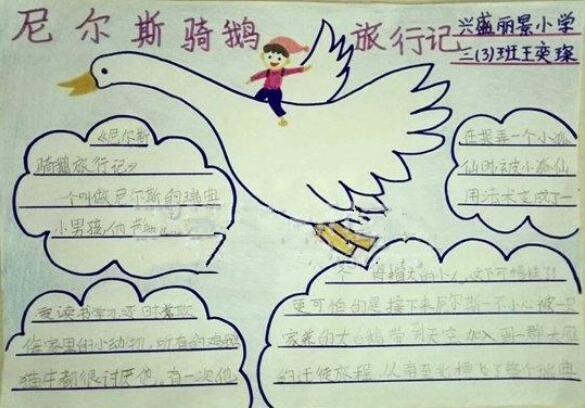 尼尔斯骑鹅旅行记
兴盛丽景小学
三(3)班王奕琛
《尼尔斯
骑鹅旅行记》
一个叫做尼尔斯的瑞典
小男孩,他
爱读书学习,还时常欺
侮家里的小动物,所有的鸡鹅
猫牛都很讨厌他。有一次他
在捉弄一个小狐
仙时被小狐仙
用法术变成了一
个拇指大的小人,这下可惨啦!
更可怕的是接下来尼尔斯一不小心被一只
家养的大白鹅带到天空,加入到一群大雁
的迁徙旅程,从南至北